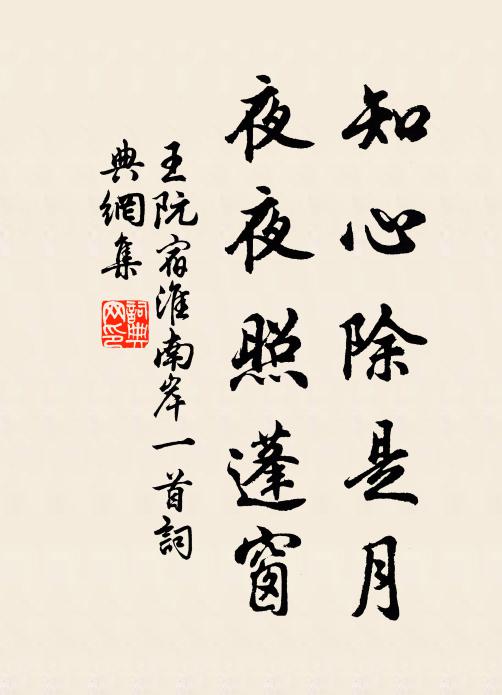 知心除是月
夜夜照蓬窗
王阮宿淮南岸一首詞
典網集
詞典
网印